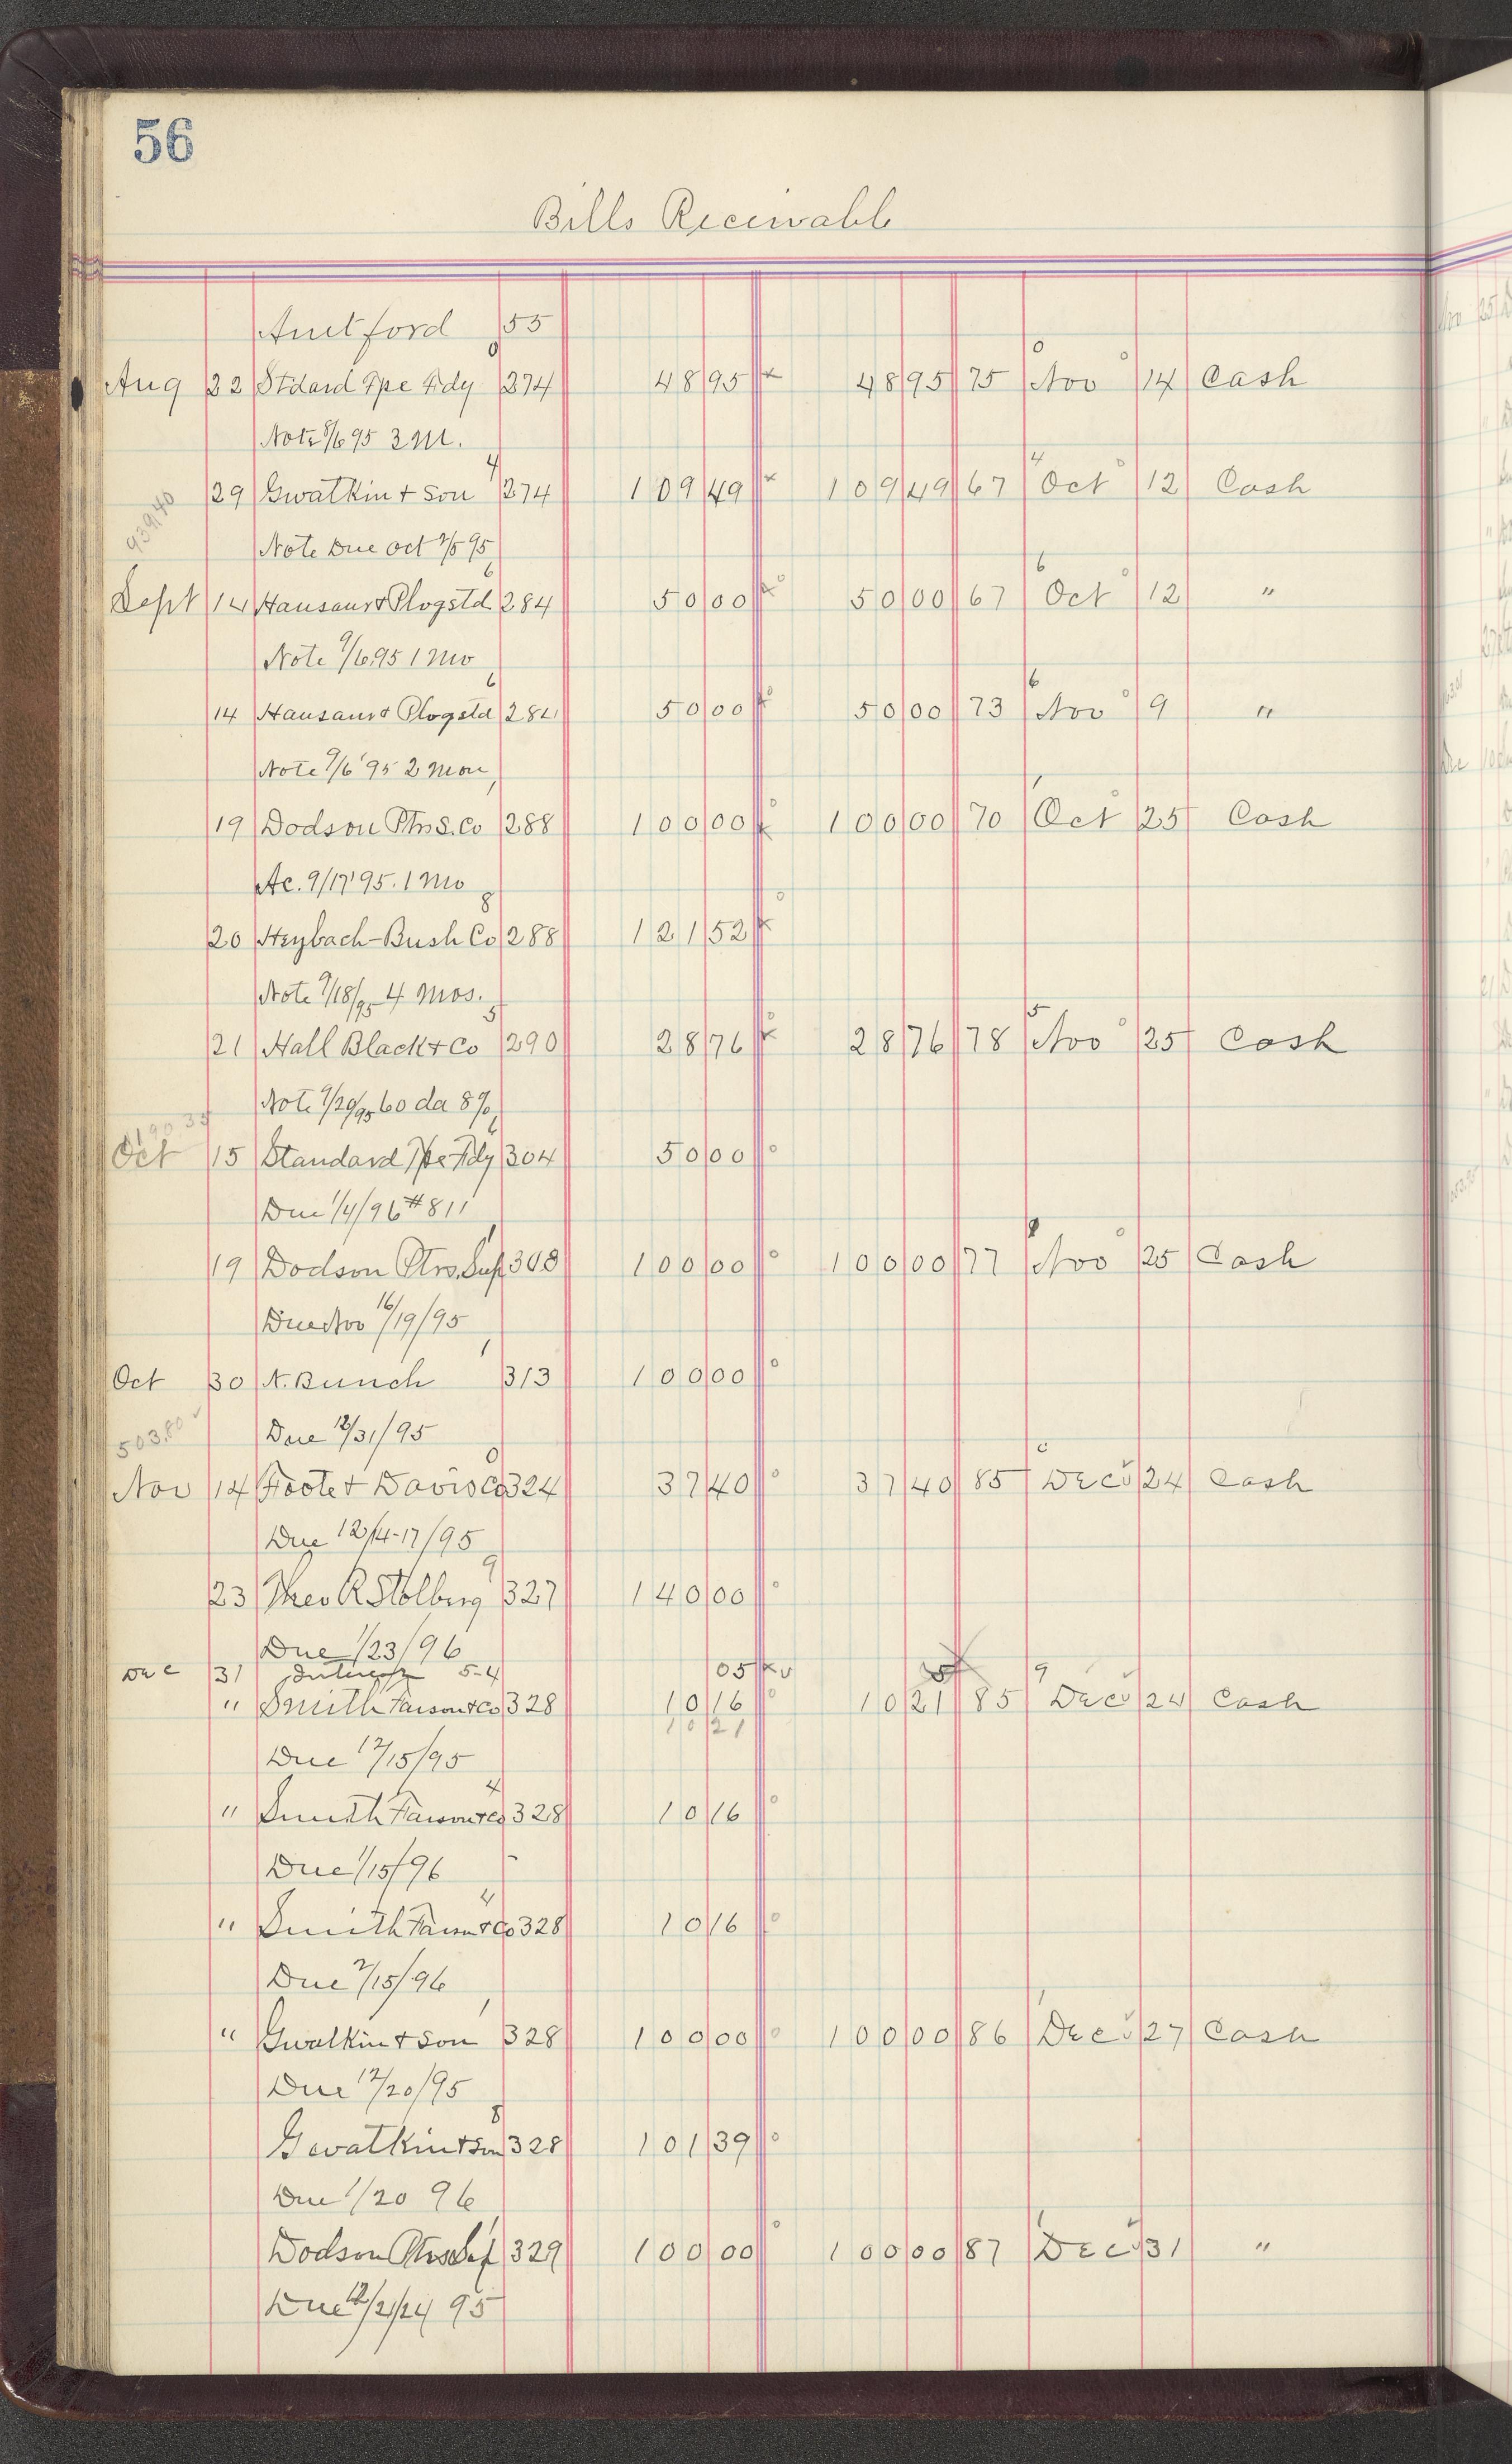 56
Bills Receivable
Amt ford 55
Aug 22 Stdard Tpe Fdy 274 48 95 48 95 75 Nov 14 Cash
Note 8/6 95 3 M.
29 Gwatkin + Son 274 109 49 109 49 67 Oct 12 Cash
939.40
Note Due Oct 95
Sept 14 Hausaur & Plogstd 284 50 00 50 00 67 Oct 12 "
Note 9/6 95 1 Mo
14 Hausaur & Plogstd 284 50 00 50 00 73 Nov 9 "
Note 9/6 '95 2 Mon
19 Dodson Ptrs. Co 288 100 00 100 00 70 Oct 25 Cash
Ac. 9/17 '95. 1 Mo
20 Heybach-Bush Co 288 121 52
Note 9/18/95 4 Mos.
21 Hall Black + Co 290 28 76 28 76 78 Nov 25 Cash
Note 9/20/95 60 da 8%
Oct 15 Standard Tpe Fdy 304 50 00
Due 1/4/96 #811
19 Dodson Ptrs. Sup 308 100 00 100 00 77 Nov 25 Cash
Due Nov 16/19/95
Oct 30 N. Bunch 313 100 00
503.80
Due 12/31/95
Nov 14 Foote + Davis Co 324 37 40 37 40 85 Dec 24 Cash
Due 12/14-17/95
23 Theo R Stolberg 327 140 00
Due 1/23/96
Dec 31 Interest 54 05
" Smith Faison + Co 328 10 16 10 21 85 Dec 24 Cash
10 21
Due 12/15/95
" Smith Faison + Co 328 10 16
Due 1/15/96
" Smith Faison + Co 328 10 16
Due 2/15/96
" Gwatkin + Son 328 100 00 100 00 86 Dec 27 Cash
Due 12/20/95
Gwatkin + Son 328 101 39
Due 1/20 96
Dodson Ptrs Sup 329 100 00 100 00 87 Dec 31 "
Due 12/21/24 95